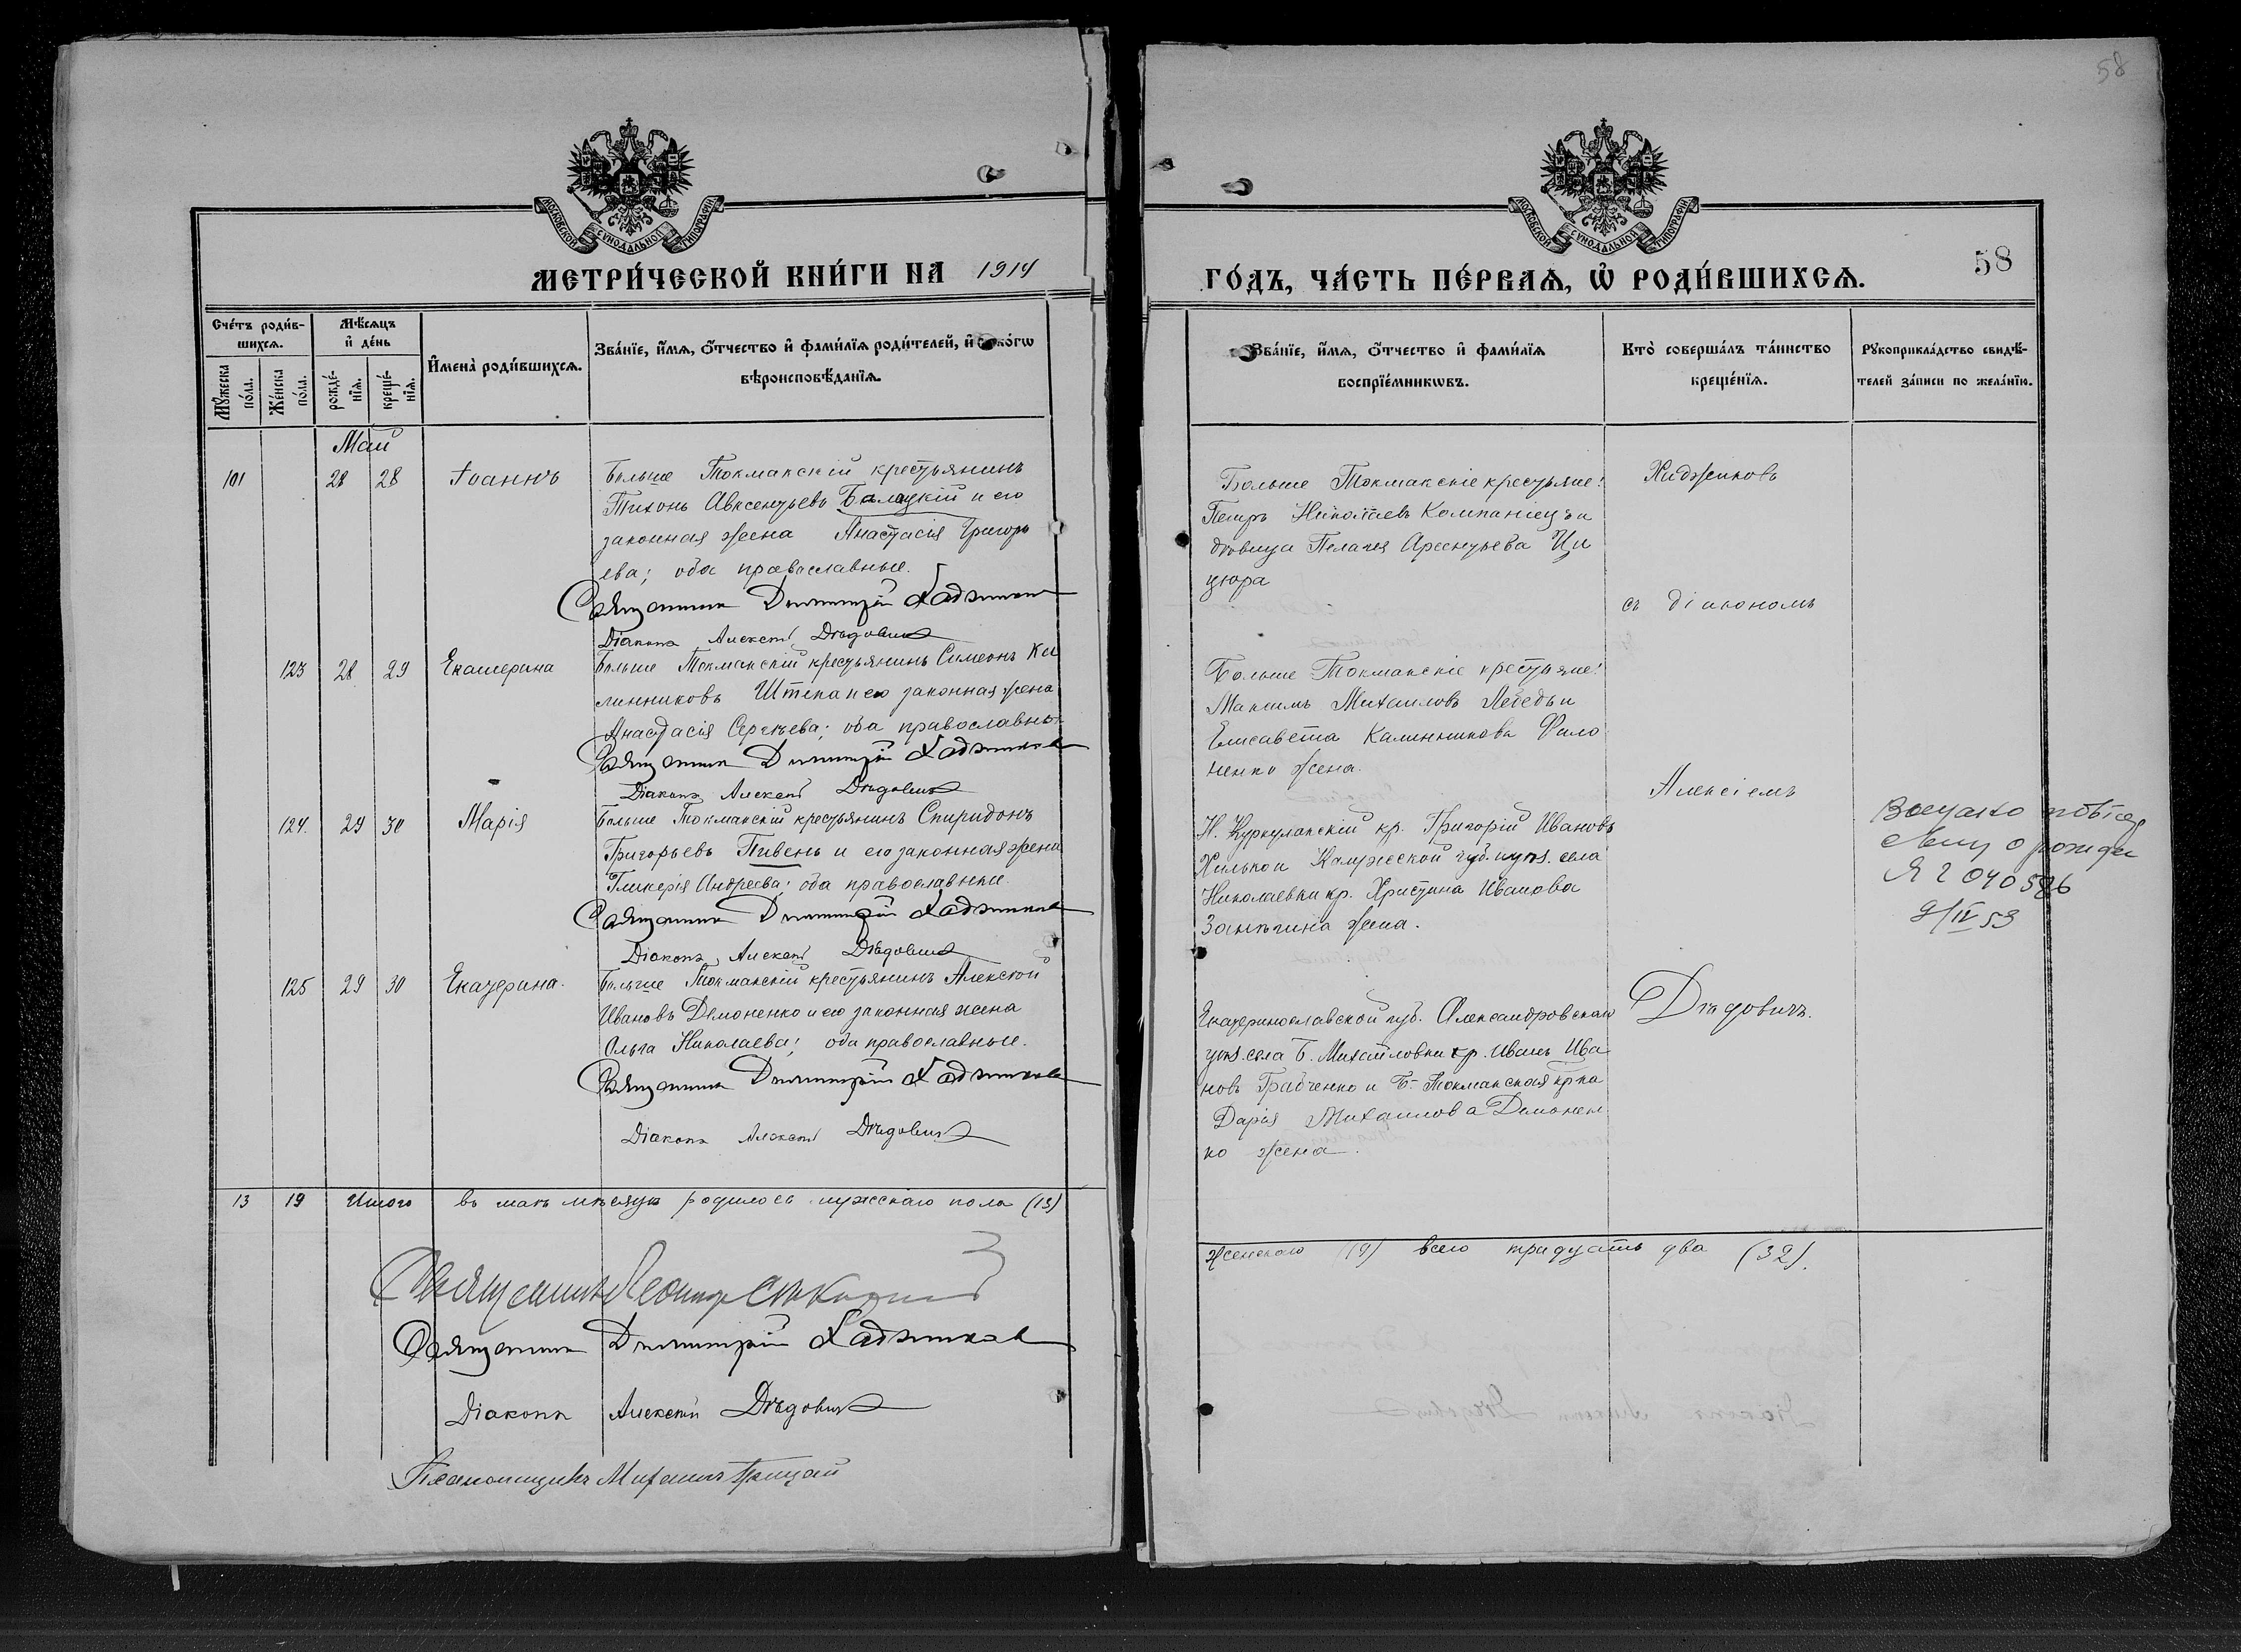 58
МОСКОВСКОЙ СѴНОДАЛЬНОЙ ТИПОГРАФІИ
МЕТРИ́ЧЕСКОЙ КНИ́ГИ НА 1914
Сче́тъ роди́вшихсѧ.
Мꙋ́жеска по́ла.
Же́нска по́ла.
Мѣ́сѧцъ и҆ де́нь
рожде́нїѧ.
креще́нїѧ.
И҆мена̀ роди́вшихсѧ.
Зва́нїе, и҆́мѧ, ѻ҆́тчество и҆ фами́лїѧ роди́телей, и҆ како́гѡ
вѣроисповѣ́данїѧ.
Май
101 28 28 Іоаннъ
Больше Токмакскій крестьянинъ
Тихонъ Авксентьевъ Балацкій и его
законная жена Анастасія Григорь
ева; оба православные.
Священникъ Димитрій Хаджиновъ
Діаконъ Алексѣй Дѣдовичъ
123 28 29 Екатерина
Больше Токмакскій крестьянинъ Симеонъ Ка
линниковъ Штепа и его законная жена
Анастасія Сергѣева; оба православны
Священникъ Димитрій Хаджиновъ
Діаконъ Алексѣй Дѣдовичъ
124. 29 30 Марія
Больше Токмакскій крестьянинъ Спиридонъ
Григорьевъ Пивень и его законная жена
Гликерія Андреева; оба православные.
Священникъ Димитрій Хаджиновъ
Діаконъ Алексѣй Дѣдовичъ
125 29 30 Екатерина.
Больше Токмакскій крестьянинъ Алексѣй
Ивановъ Демоненко и его законная жена
Ольга Николаева; оба православные.
Священникъ Димитрій Хаджиновъ
Діаконъ Алексѣй Дѣдовичъ
13 19 Итого въ маѣ мѣсяцѣ родилось мужскаго пола (13)
Священникъ
Священникъ Димитрій Хаджиновъ
Діаконъ Алексѣй Дѣдовичъ
Псаломщикъ Михаилъ Грицай
МОСКОВСКОЙ СѴНОДАЛЬНОЙ ТИПОГРАФІИ
58
ГО́ДЪ, ЧА́СТЬ ПЕ́РВАѦ, Ѡ҆ РОДИ́ВШИХСѦ.
Зва́нїе, и҆́мѧ, ѻ҆́тчество и҆ фами́лїѧ
воспрїе́мникѡвъ.
Кто̀ соверша́лъ та́инство
креще́нїѧ.
Рꙋкоприкла́дство свидѣ́телей за́писи по жела́нїю.
Больше Токмакскіе крестьяне:
Петръ Николаевъ Компаніец и
дѣвица Пелагея Арсентьева Ци
цюра
Хаджиновъ
съ діакономъ
Больше Токмакскіе крестьяне:
Максимъ Михаиловъ Лебедь и
Елисавета Калинникова Фило
ненко жена.
Алексіемъ
Н. Куркулакскій кр. Григорій Ивановъ
Хилько и Калужской губ. и уѣз. села
Николаевки кр. Христина Иванова
жена.
о рожде
Я 2 040586
9/IV 53
Екатеринославской губ. Александровскаго
уѣз. села Б. Михайловки кр. Иванъ Ива
новъ Грабченко и Б.-Токмакская кр-ка
Дарія Михаилова Демонен
ко жена.
Дѣдовичъ.
женскаго (19) всего тридцать два (32).